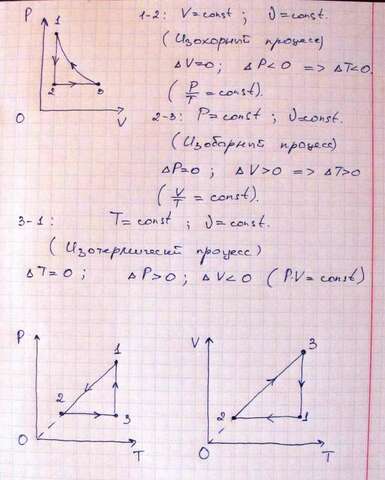 P
1
2
3
O
V
1-2: V=const ; ν=const.
(Изохорный процесс)
ΔV=0; ΔP<0 => ΔT<0.
(P/T = const).
2-3: P=const ; ν=const.
(Изобарный процесс)
ΔP=0; ΔV>0 => ΔT>0
(V/T = const).
3-1: T=const ; ν=const.
(Изотермический процесс)
ΔT=0; ΔP>0; ΔV<0 (P·V=const)
P
1
2
3
O
T
V
3
2
1
O
T